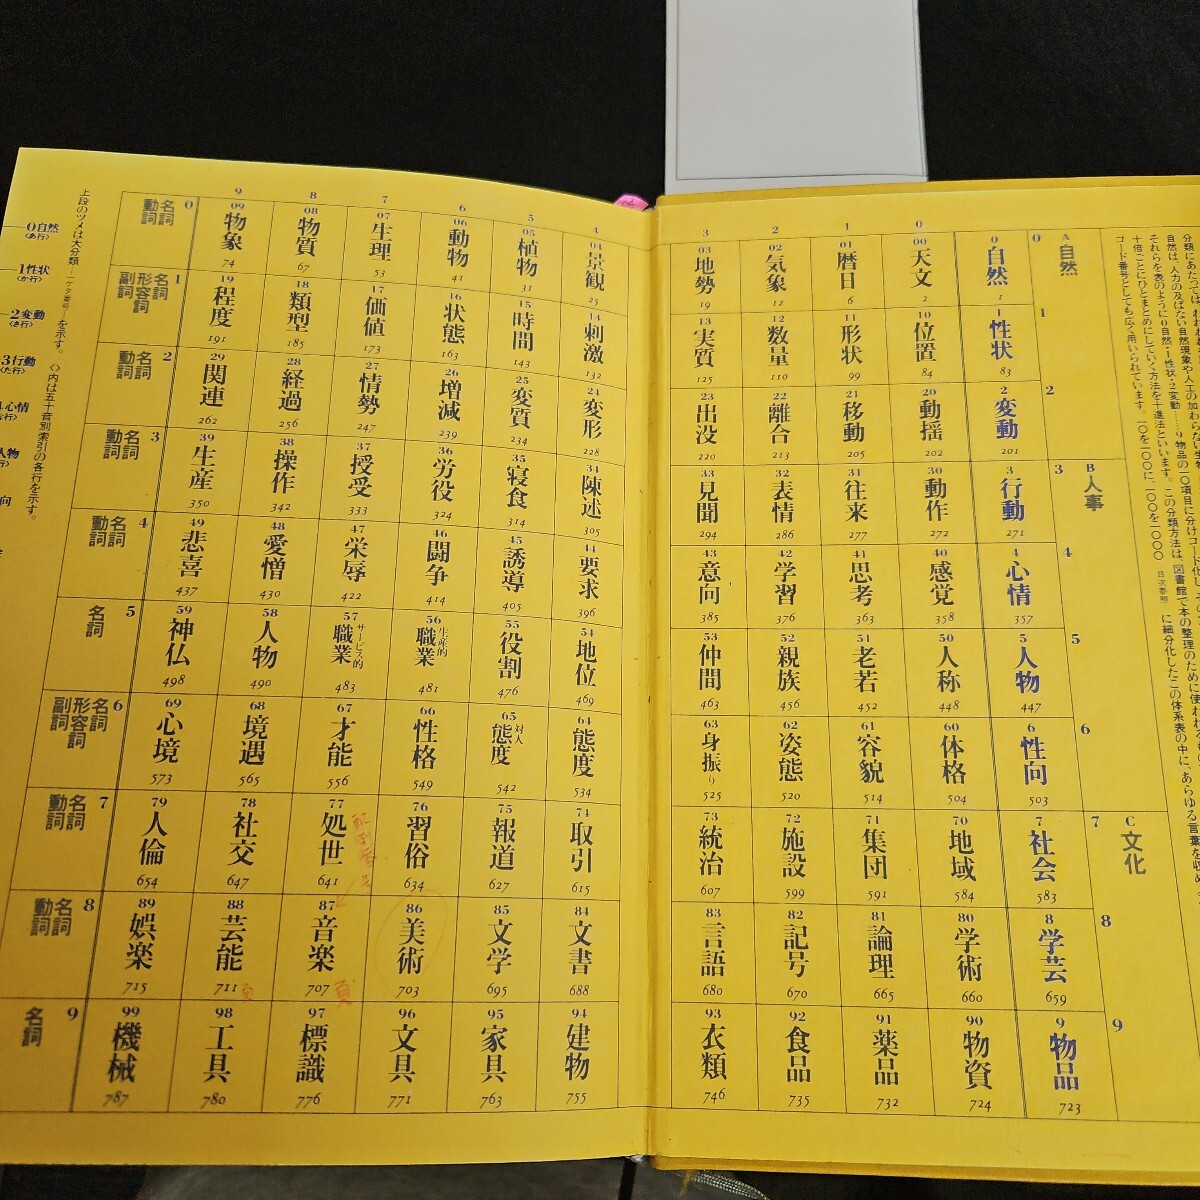 分類にあたっては
自然は、人力の及ばない自然現象や人工の加わらない生物
それらを表のように0自然・1性状・2変動……9物品の一〇項目に分けコード化し
十倍ごとにひとまとめにしていく方法を十進法といいます。この分類方法は、図書館で本の整理のために使われる
コード番号としても広く用いられています。一〇を一〇〇に、一〇〇を一〇〇〇 目次参照 に細分化したこの体系表の中に、あらゆる言葉を収め
A 自然
B 人事
C 文化
0 1 2 3 4 5 6 7 8 9
0 1 2 3 4 5 6 7 8 9
0 自然 1
00 天文 2
01 暦日 6
02 気象 12
03 地勢 19
04 景観 25
05 植物 31
06 動物 41
07 生理 53
08 物質 67
09 物象 74
0 名詞 動詞
1 性状 83
10 位置 84
11 形状 99
12 数量 110
13 実質 125
14 刺激 132
15 時間 143
16 状態 163
17 価値 173
18 類型 185
19 程度 191
1 名詞 形容詞 副詞
2 変動 201
20 動揺 202
21 移動 205
22 離合 213
23 出没 220
24 変形 228
25 変質 234
26 増減 239
27 情勢 247
28 経過 256
29 関連 262
2 名詞 動詞
3 行動 271
30 動作 272
31 往来 277
32 表情 286
33 見聞 294
34 陳述 305
35 寝食 314
36 労役 324
37 授受 333
38 操作 342
39 生産 350
3 名詞 動詞
4 心情 357
40 感覚 358
41 思考 363
42 学習 376
43 意向 385
44 要求 396
45 誘導 405
46 闘争 414
47 栄辱 422
48 愛憎 430
49 悲喜 437
4 名詞 動詞
5 人物 447
50 人称 448
51 老若 452
52 親族 456
53 仲間 463
54 地位 469
55 役割 476
56 職業 生産的 481
57 職業 サービス的 483
58 人物 490
59 神仏 498
5 名詞
6 性向 503
60 体格 504
61 容貌 514
62 姿態 520
63 身振り 525
64 態度 534
65 態度 対人 542
66 性格 549
67 才能 556
68 境遇 565
69 心境 573
6 名詞 形容詞 副詞
7 社会 583
70 地域 584
71 集団 591
72 施設 599
73 統治 607
74 取引 615
75 報道 627
76 習俗 634
77 処世 641
78 社交 647
79 人倫 654
7 名詞 動詞
8 学芸 659
80 学術 660
81 論理 665
82 記号 670
83 言語 680
84 文書 688
85 文学 695
86 美術 703
87 音楽 707 頁
88 芸能 711 頁
89 娯楽 715
8 名詞 動詞
9 物品 723
90 物資 724
91 薬品 732
92 食品 735
93 衣類 746
94 建物 755
95 家具 763
96 文具 771
97 標識 776
98 工具 780
99 機械 787
9 名詞
上段のツメは大分類 一ケタ番号 を示す。〈 〉内は五十音別索引の各行を示す。
0自然
〈あ行〉
1性状
〈か行〉
2変動
〈さ行〉
3行動
〈た行〉
心情
人物
向